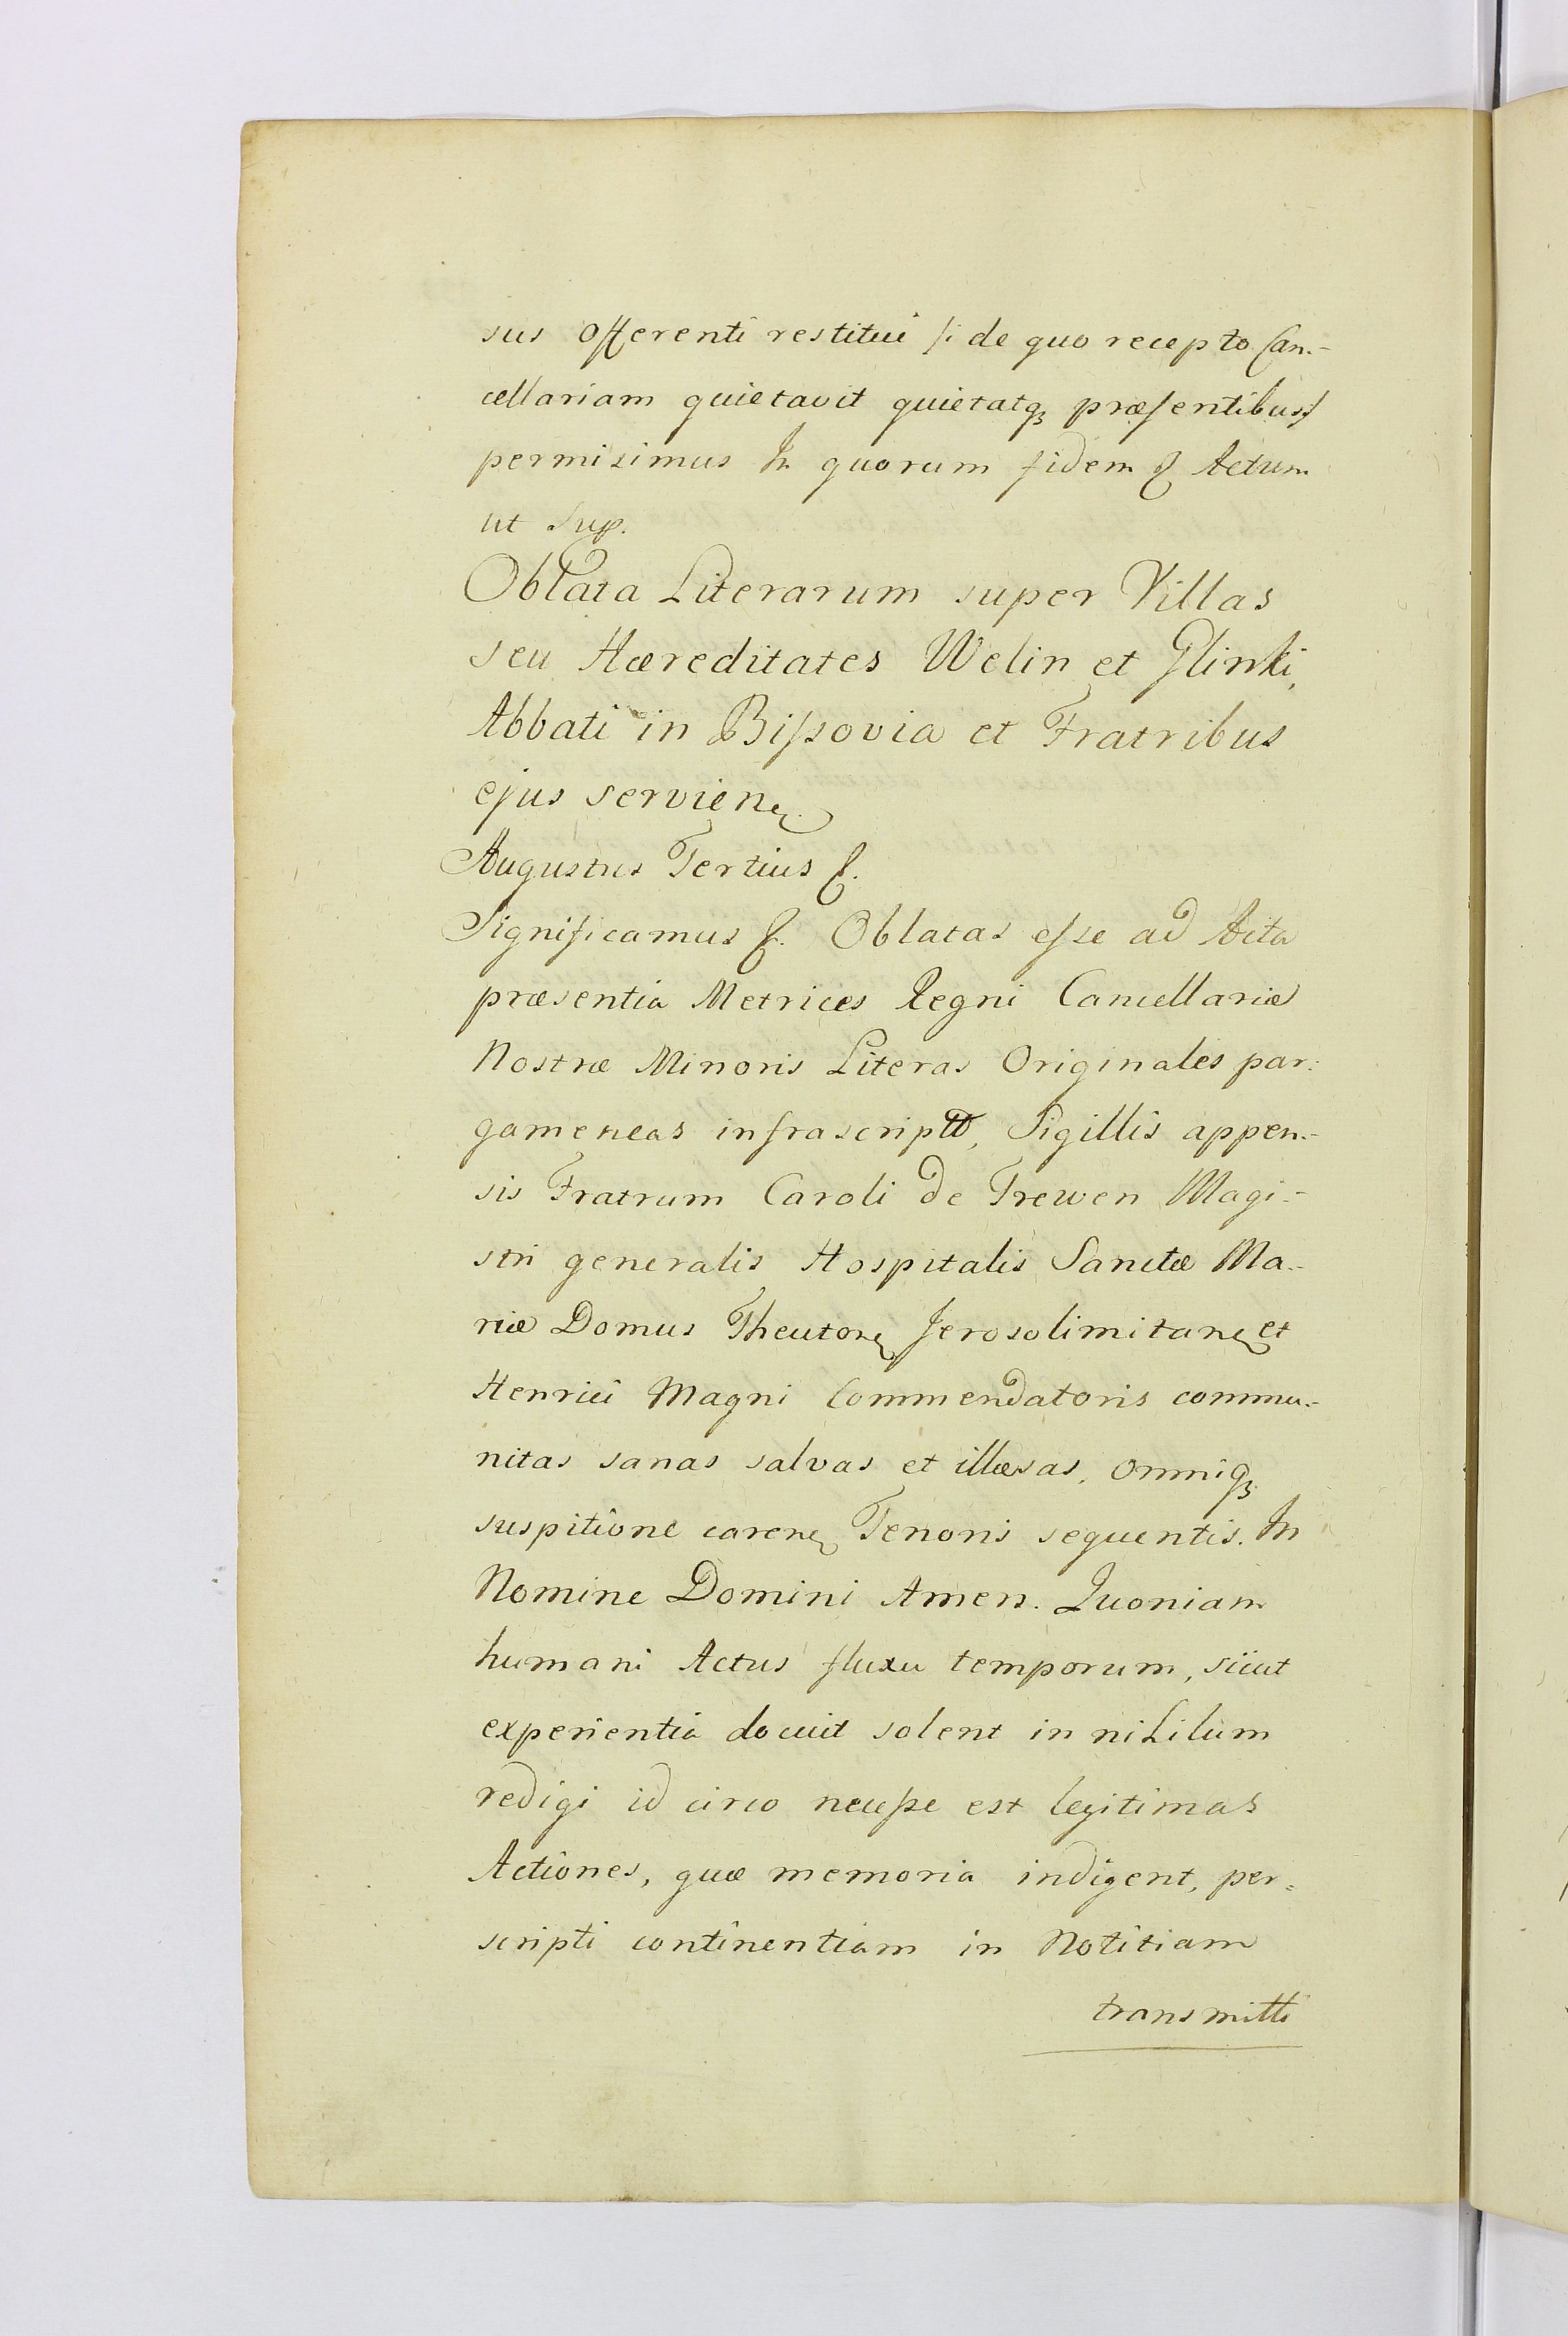 sus offerenti restitui /: de quo recepto Can-
cellariam quietavit quietatq₃ præsentibus :/
permisimus In quorum fidem &. Actum
ut Sup.
Oblata Literarum super Villas
seu Hæreditates Welin et Glinki,
Abbati in Bissovia et Fratribus
ejus servien.
Augustus Tertius &.
Significamus &. Oblatas esse ad Acta
præsentia Metrices Regni Cancellariæ
Nostræ Minoris Literas Originales par-
gameneas infrascriptt, Sigillis appen-
sis Fratrum Caroli de Trewen Magi-
stri generalis Hospitalis Sanctæ Ma-
riæ Domus Theuton Jerosolimitan et
Henrici Magni Commendatoris commu-
nitas sanas salvas et illæsas, omniq₃
suspitione caren Tenoris sequentis. In
Nomine Domini Amen. Quoniam
humani Actus fluxu temporum, sicut
experientia docuit solent in nihilum
redigi id circo necesse est legitimas
Actiones, quæ memoria indigent, per=
scripti continentiam in Notitiam
transmitti